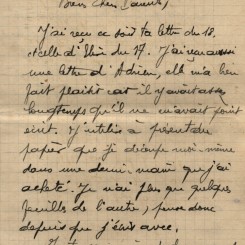 Bien Chers Parents,
J'ai reçu ce soir ta lettre du 18.
et celle d' du 17. J'ai reçu aussi
une lettre d'Adrien, elle m'a bien
fait plaisir car il y avait assez
longtemps qu'il ne m'avait point
écrit. J'utilise à présent du
papier que je découpe moi-même
dans une demi-main que j'ai
acheté. Je n'ai plus que quelques
feuilles de l'autre, pense donc
depuis que j'écris avec.